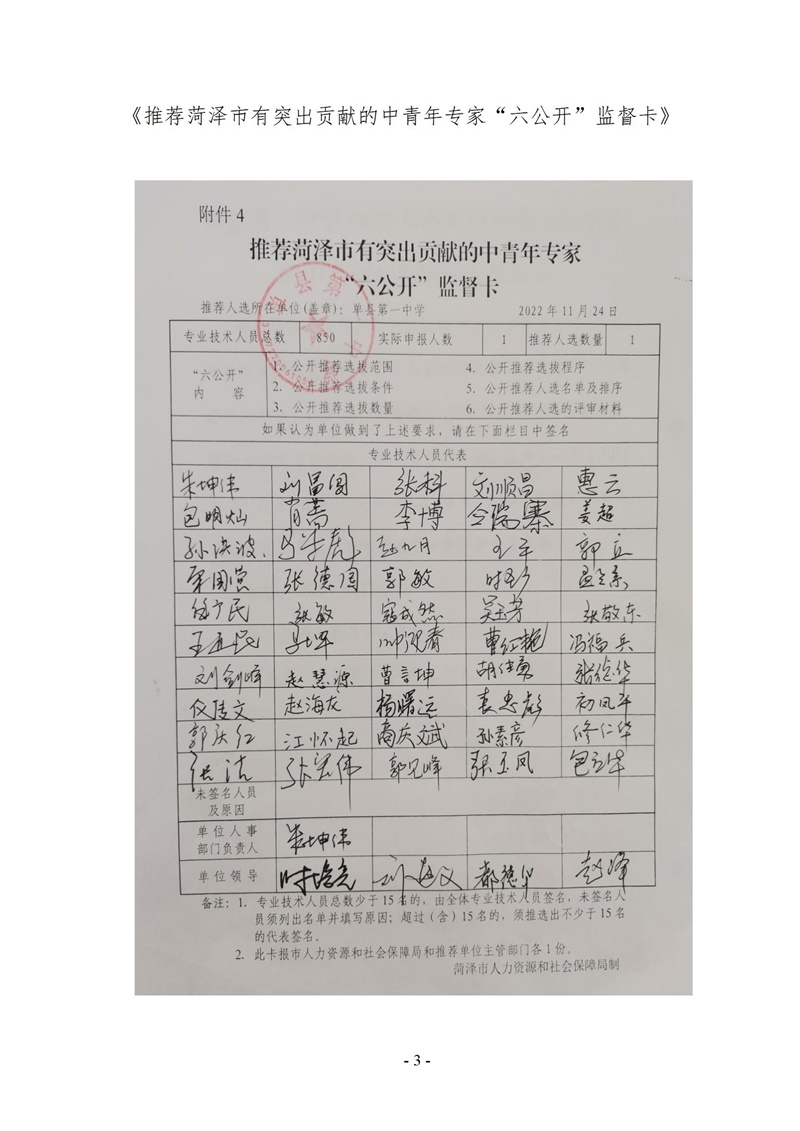 《推荐菏泽市有突出贡献的中青年专家“六公开”监督卡》
附件 4
推荐菏泽市有突出贡献的中青年专家
“六公开”监督卡
推荐人选所在单位(盖章): 单县第一中学 2022 年 11 月 24 日
专业技术人员总数 850 实际申报人数 1 推荐人选数量 1
“六公开”
内 容
1. 公开推荐选拔范围 4. 公开推荐选拔程序
2. 公开推荐选拔条件 5. 公开推荐人选名单及排序
3. 公开推荐选拔数量 6. 公开推荐人选的评审材料
如果认为单位做到了上述要求，请在下面栏目中签名
专业技术人员代表
朱坤伟 刘昌国 张科 刘顺昌 惠云
包明灿 李博 姜超
孙洪波 王军 郭立
张德阔 郭敏
张敏 寇成然 吴玉芳 张敬东
曹红艳 冯福兵
刘剑峰 赵慧源 曹言坤 胡佳勇 张德华
仪传文 赵海友 杨曙运 袁忠彪 初凤平
郭庆红 江怀起 高庆斌 孙素彦 佟仁华
张洁 张宏伟 郭兄峰 张玉凤
未签名人员
及原因
单位人事
部门负责人 朱坤伟
单位领导 郝德华 赵峰
备注: 1. 专业技术人员总数少于 15 名的，由全体专业技术人员签名，未签名人
员须列出名单并填写原因；超过（含）15 名的，须推选出不少于 15 名
的代表签名。
2. 此卡报市人力资源和社会保障局和推荐单位主管部门各 1 份。
菏泽市人力资源和社会保障局制
- 3 -